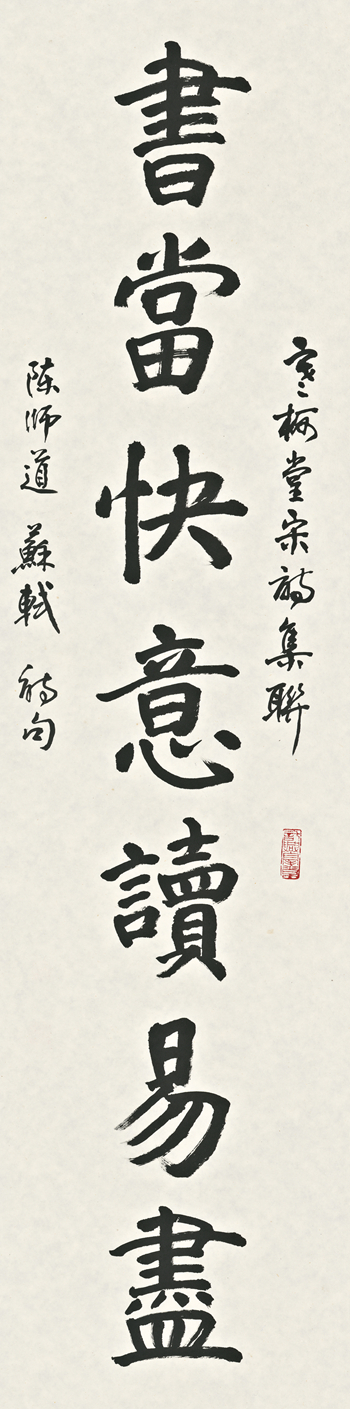 寒柯堂宋詩集聯
書當快意讀易盡
陈师道 蘇軾 詩句